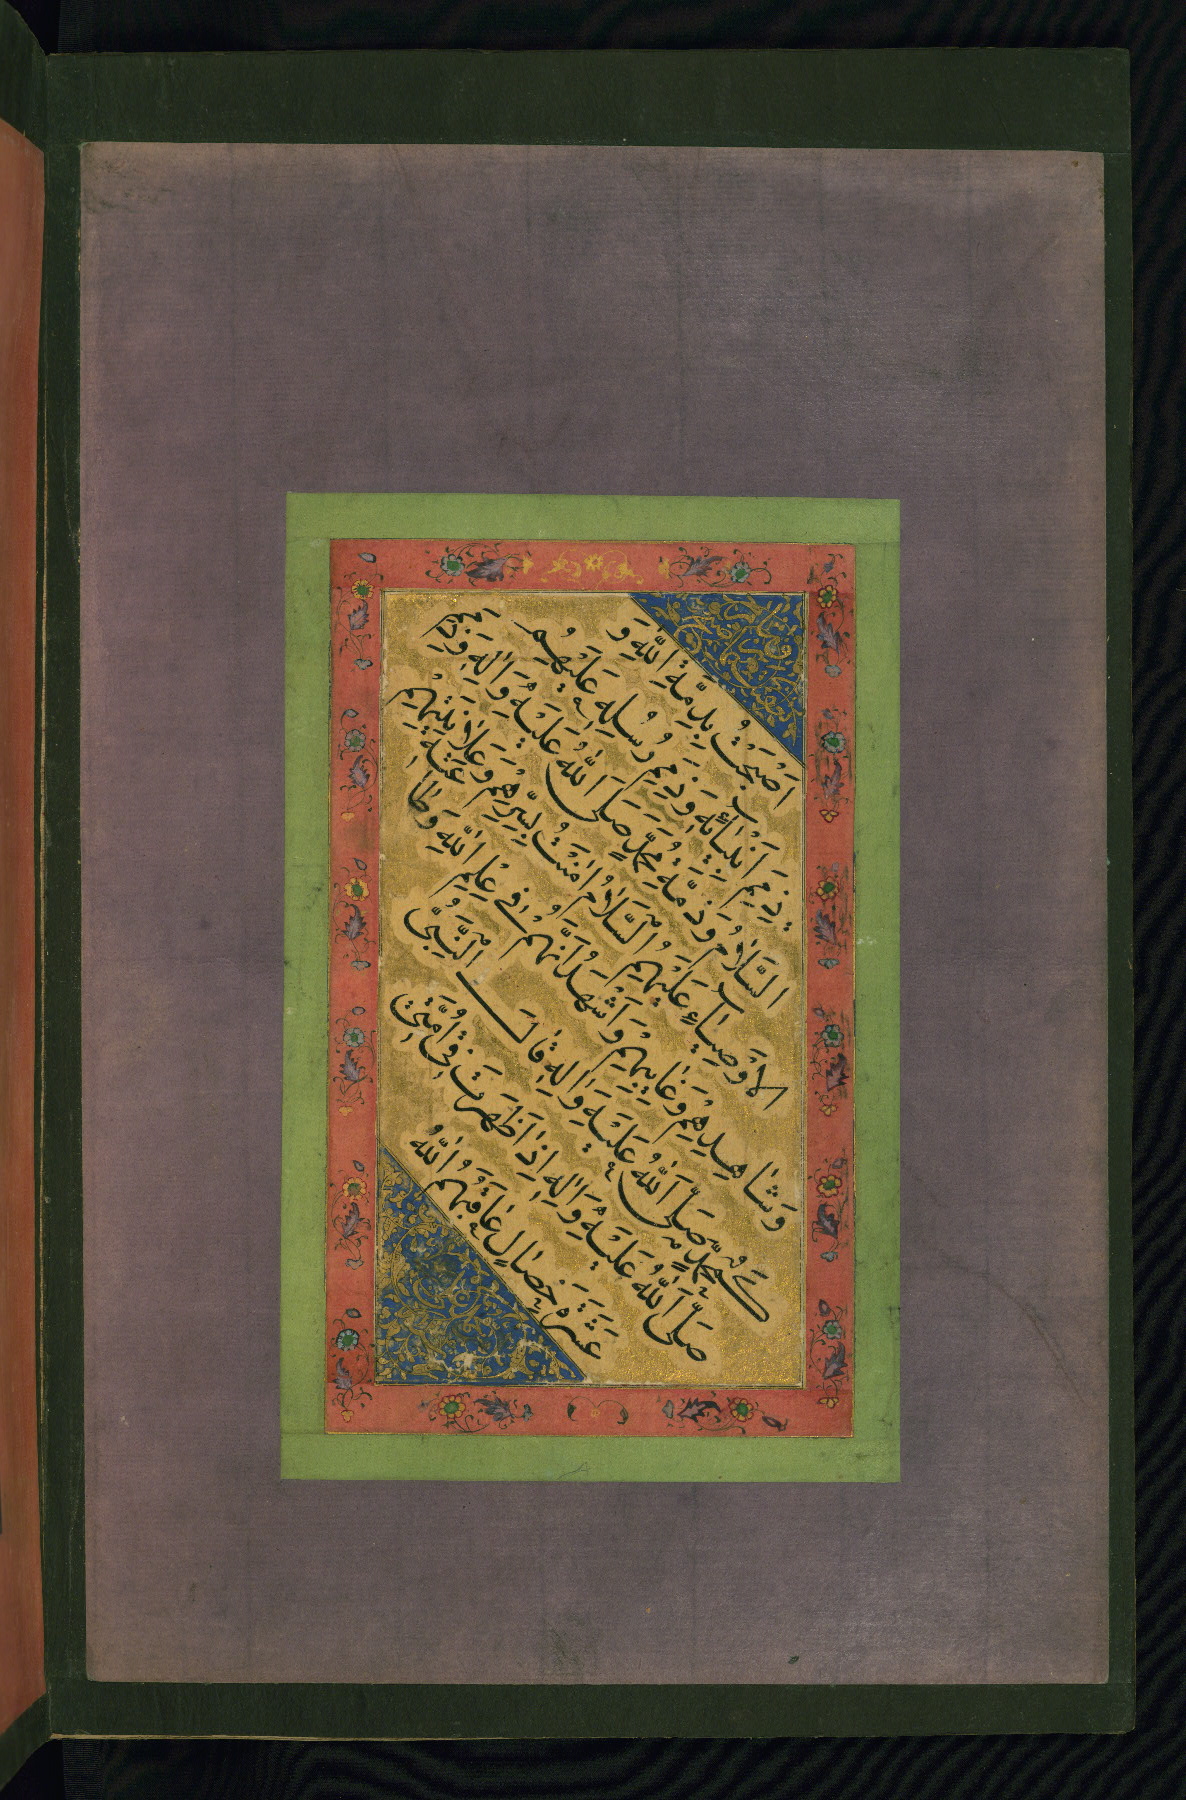 اَصْبَحْتُ بِذِمَّةِ اللّٰهِ وَ
ذِمَمِ اَنْبِيَائِهِ وَذِمَمِ رُسُلِهِ عَلَيْهِمُ
السَّلَامُ وَذِمَّةِ مُحَمَّدٍ صَلَّى اللّٰهُ عَلَيْهِ وَاٰلِهِ وَذِمَمِ
الاَوْصِيَاءِ عَلَيْهِمُ السَّلَامُ اٰمَنْتُ بِسِرِّهِمْ وَعَلَانِيَتِهِمْ
وَشَاهِدِهِمْ وَغَايِبِهِمْ وَاَشْهَدُ اَنَّهُمْ فِي عِلْمِ اللّٰهِ وَطَاعَتِهِ
كَمُحَمَّدٍ صَلَّى اللّٰهُ عَلَيْهِ وَاٰلِهِ قَالَ النَّبِيُّ
صَلَّى اللّٰهُ عَلَيْهِ وَاٰلِهِ اِذَا ظَهَرَتْ فِي اُمَّتِي
عَشَرَةُ خِصَالٍ عَاقَبَهُمُ اللّٰهُ